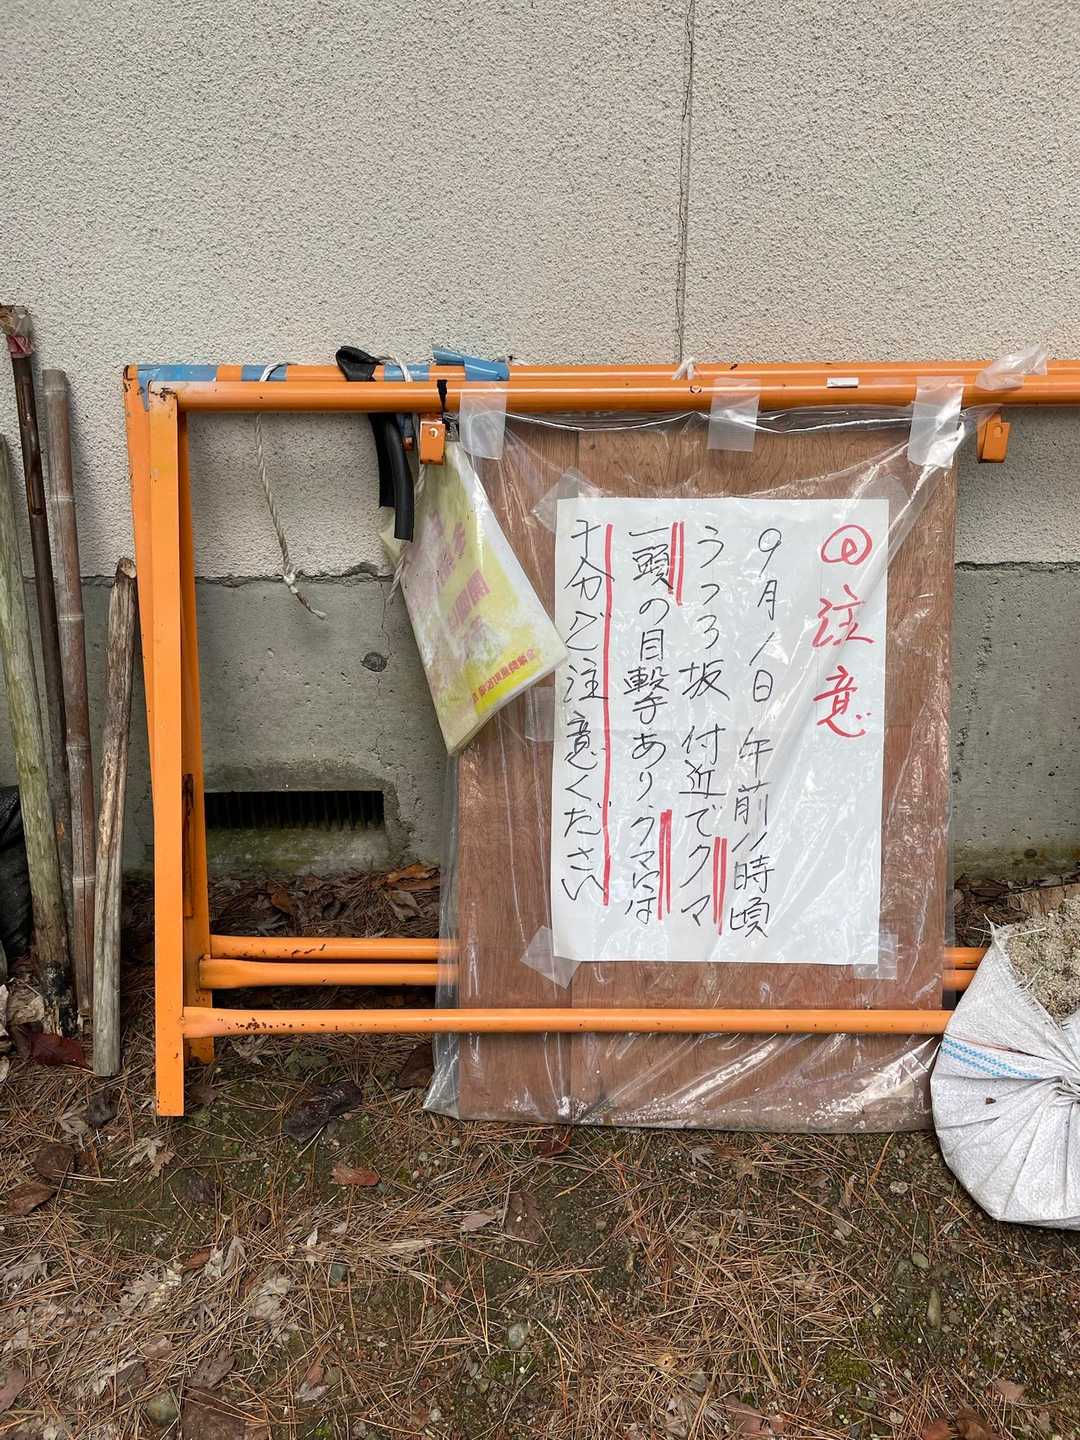 注意
9月1日午前1時頃
うつろ坂付近でクマ
一頭の目撃あり、クマには
十分ご注意ください